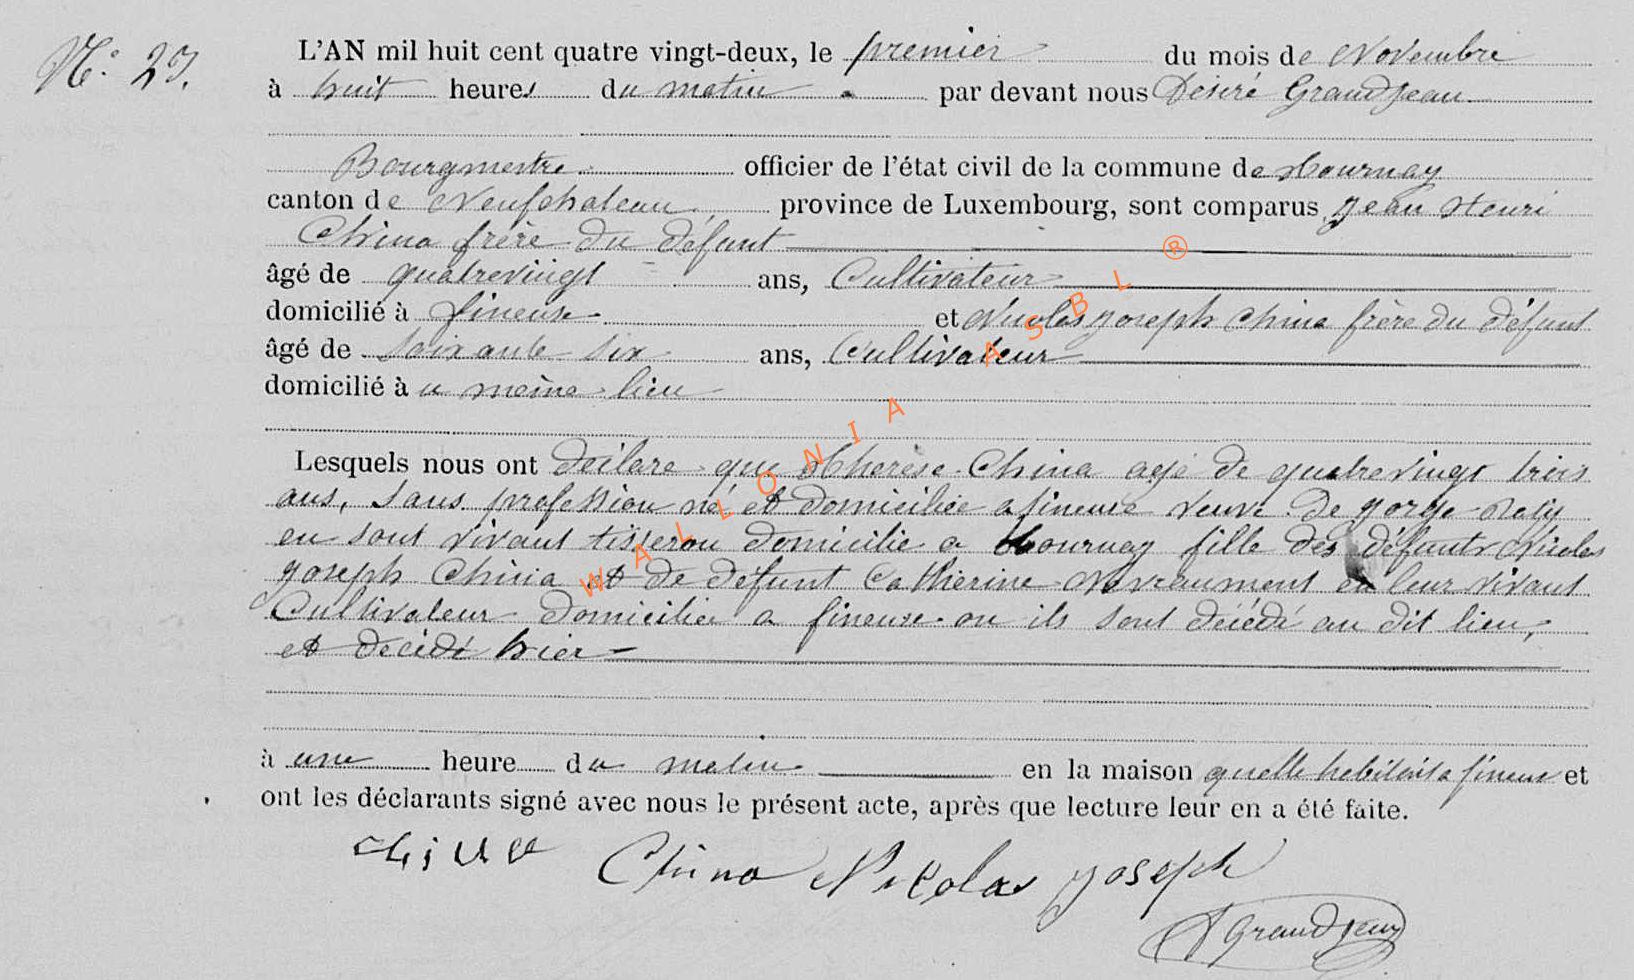 N° 27.
L'AN mil huit cent quatre vingt-deux, le premier du mois de Novembre
à huit heures du matin par devant nous Désiré Grandjean
Bourgmestre officier de l'état civil de la commune de Tournay
canton de Neufchateau province de Luxembourg, sont comparus Jean Henri
China frère du défunt
âgé de quatrevingt ans, Cultivateur
domicilié à fineuse et Nicolas Joseph China frère du défunt
âgé de soixante six ans, Cultivateur
domicilié à u même lieu
Lesquels nous ont déclare que Therèse China agé de quatrevingt trois
ans, sans profession né et domiciliée a fineuse veuve de
en sont vivant tisseron domicilie a tournay fille des défunts Nicolas
Joseph China et de défunt Catherine en leur vivant
Cultivateur domicilié a fineuse ou ils sont décédé au dit lieu,
et décédé hier
à une heure du matin en la maison quelle habitait a fineuse et
ont les déclarants signé avec nous le présent acte, après que lecture leur en a été faite.
China China Nicolas Joseph
D Grandjean
WALLONIA ASBL ®